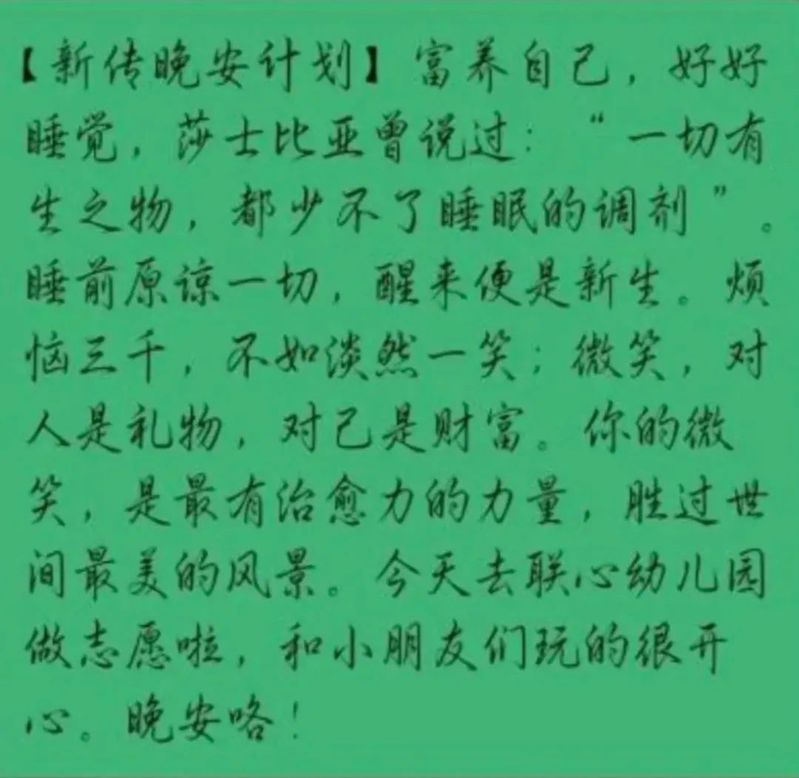 【新传晚安计划】富养自己，好好
睡觉，莎士比亚曾说过：“一切有
生之物，都少不了睡眠的调剂”。
睡前原谅一切，醒来便是新生。烦
恼三千，不如淡然一笑；微笑，对
人是礼物，对己是财富。你的微
笑，是最有治愈力的力量，胜过世
间最美的风景。今天去联心幼儿园
做志愿啦，和小朋友们玩的很开
心。晚安咯！